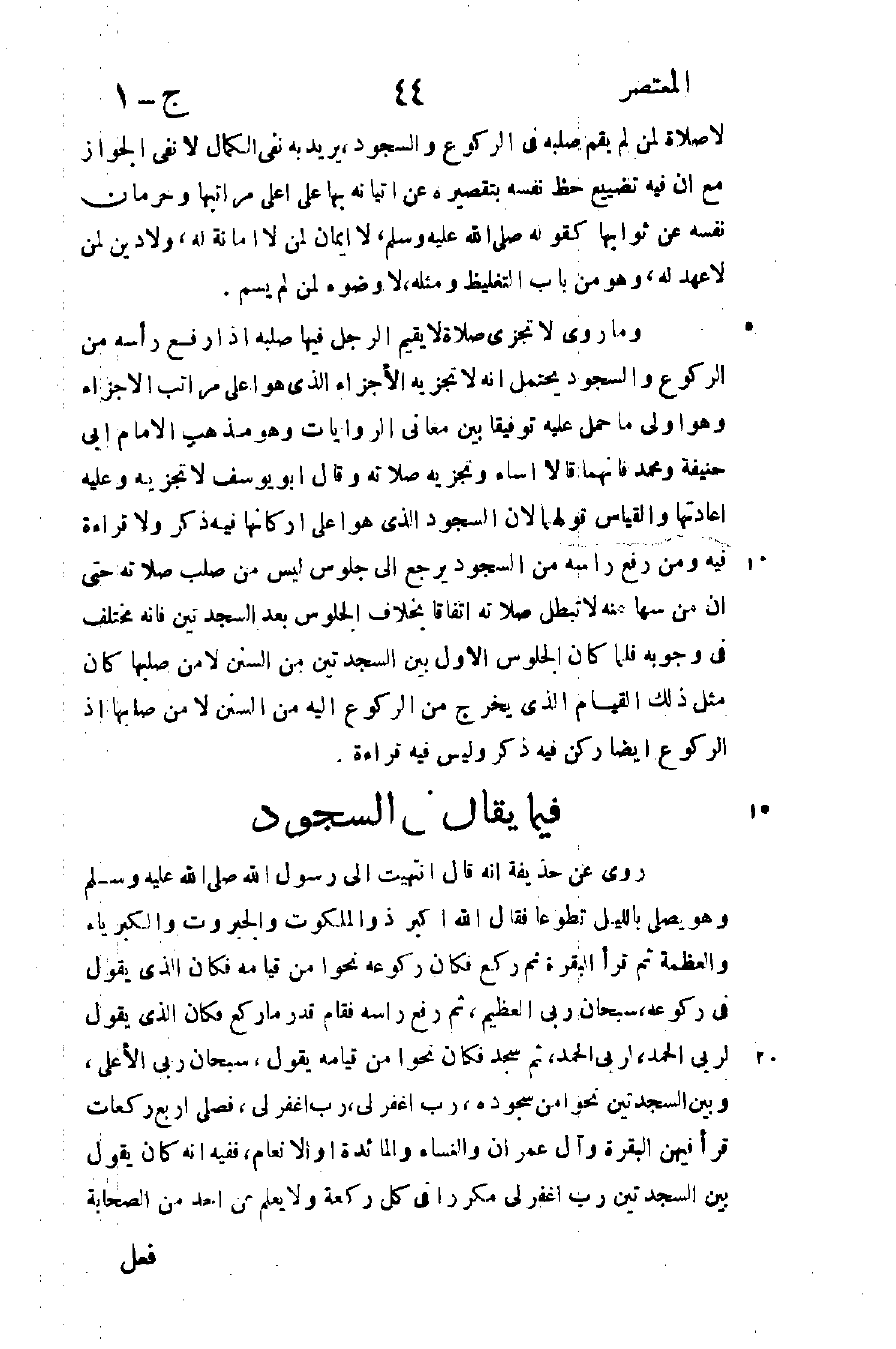 المعتصر ٤٤ ج - ١
لا صلاة لمن لم يقم صلبه فى الركوع والسجود، يريد به نفى الكمال لا نفى الجواز
مع ان فيه تضييع حظ نفسه بتقصيره عن اتيانه بها على اعلى مراتبها وحرمان
نفسه عن ثوابها كقوله صلى الله عليه وسلم، لا ايمان لمن لا امانة له، ولا دين لمن
لا عهد له، وهو من باب التغليظ ومثله، لا وضوء لمن لم يسم .
٥ وما روى لا تجزى صلاة لا يقيم الرجل فيها صلبه اذا رفع رأسه من
الركوع والسجود يحتمل انه لا تجزيه الأجزاء الذى هو اعلى مراتب الاجزاء
وهو اولى ما حمل عليه توفيقا بين معانى الروايات وهو مذهب الامام ابى
حنيفة ومحمد فانهما قالا اساء وتجزيه صلاته وقال ابو يوسف لا تجزيه وعليه
اعادتها والقياس قولهما لان السجود الذى هو اعلى اركانها فيه ذكر ولا قراءة
١٠ فيه ومن رفع راسه من السجود يرجع الى جلوس ليس من صلب صلاته حتى
ان من سها عنه لا تبطل صلاته اتفاقا بخلاف الجلوس بعد السجدتين فانه مختلف
فى وجوبه فلما كان الجلوس الاول بين السجدتين من السنن لا من صلبها كان
مثل ذلك القيام الذى يخرج من الركوع اليه من السنن لا من صلبها اذ
الركوع ايضا ركن فيه ذكر وليس فيه قراءة .
١٥ فيما يقال السجود
روى عن حذيفة انه قال انتهيت الى رسول الله صلى الله عليه وسلم
وهو يصلى بالليل تطوعا فقال الله اكبر ذو الملكوت والجبروت والكبرياء
والعظمة ثم قرأ البقرة ثم ركع فكان ركوعه نحوا من قيامه فكان الذى يقول
فى ركوعه، سبحان ربى العظيم، ثم رفع راسه فقام قدر ما ركع فكان الذى يقول
٢٠ لربى الحمد، لربى الحمد، ثم سجد فكان نحوا من قيامه يقول، سبحان ربى الأعلى،
وبين السجدتين نحوا من سجوده، رب اغفر لى، رب اغفر لى، فصلى اربع ركعات
قرأ فيهن البقرة وآل عمران والنساء والمائدة او الانعام، ففيه انه كان يقول
بين السجدتين رب اغفر لى مكررا فى كل ركعة ولا يعلم عن احد من الصحابة
فعل